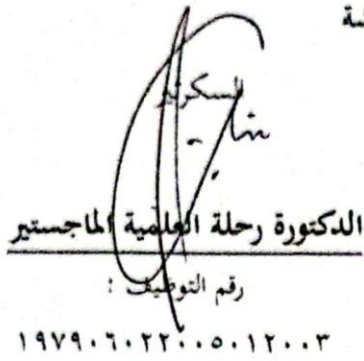 السكرتير
الدكتورة رحلة العلمية الماجستير
رقم التوظيف :
١٩٧٩٠٦٠٢٢٠٠٥٠١٢٠٠٣